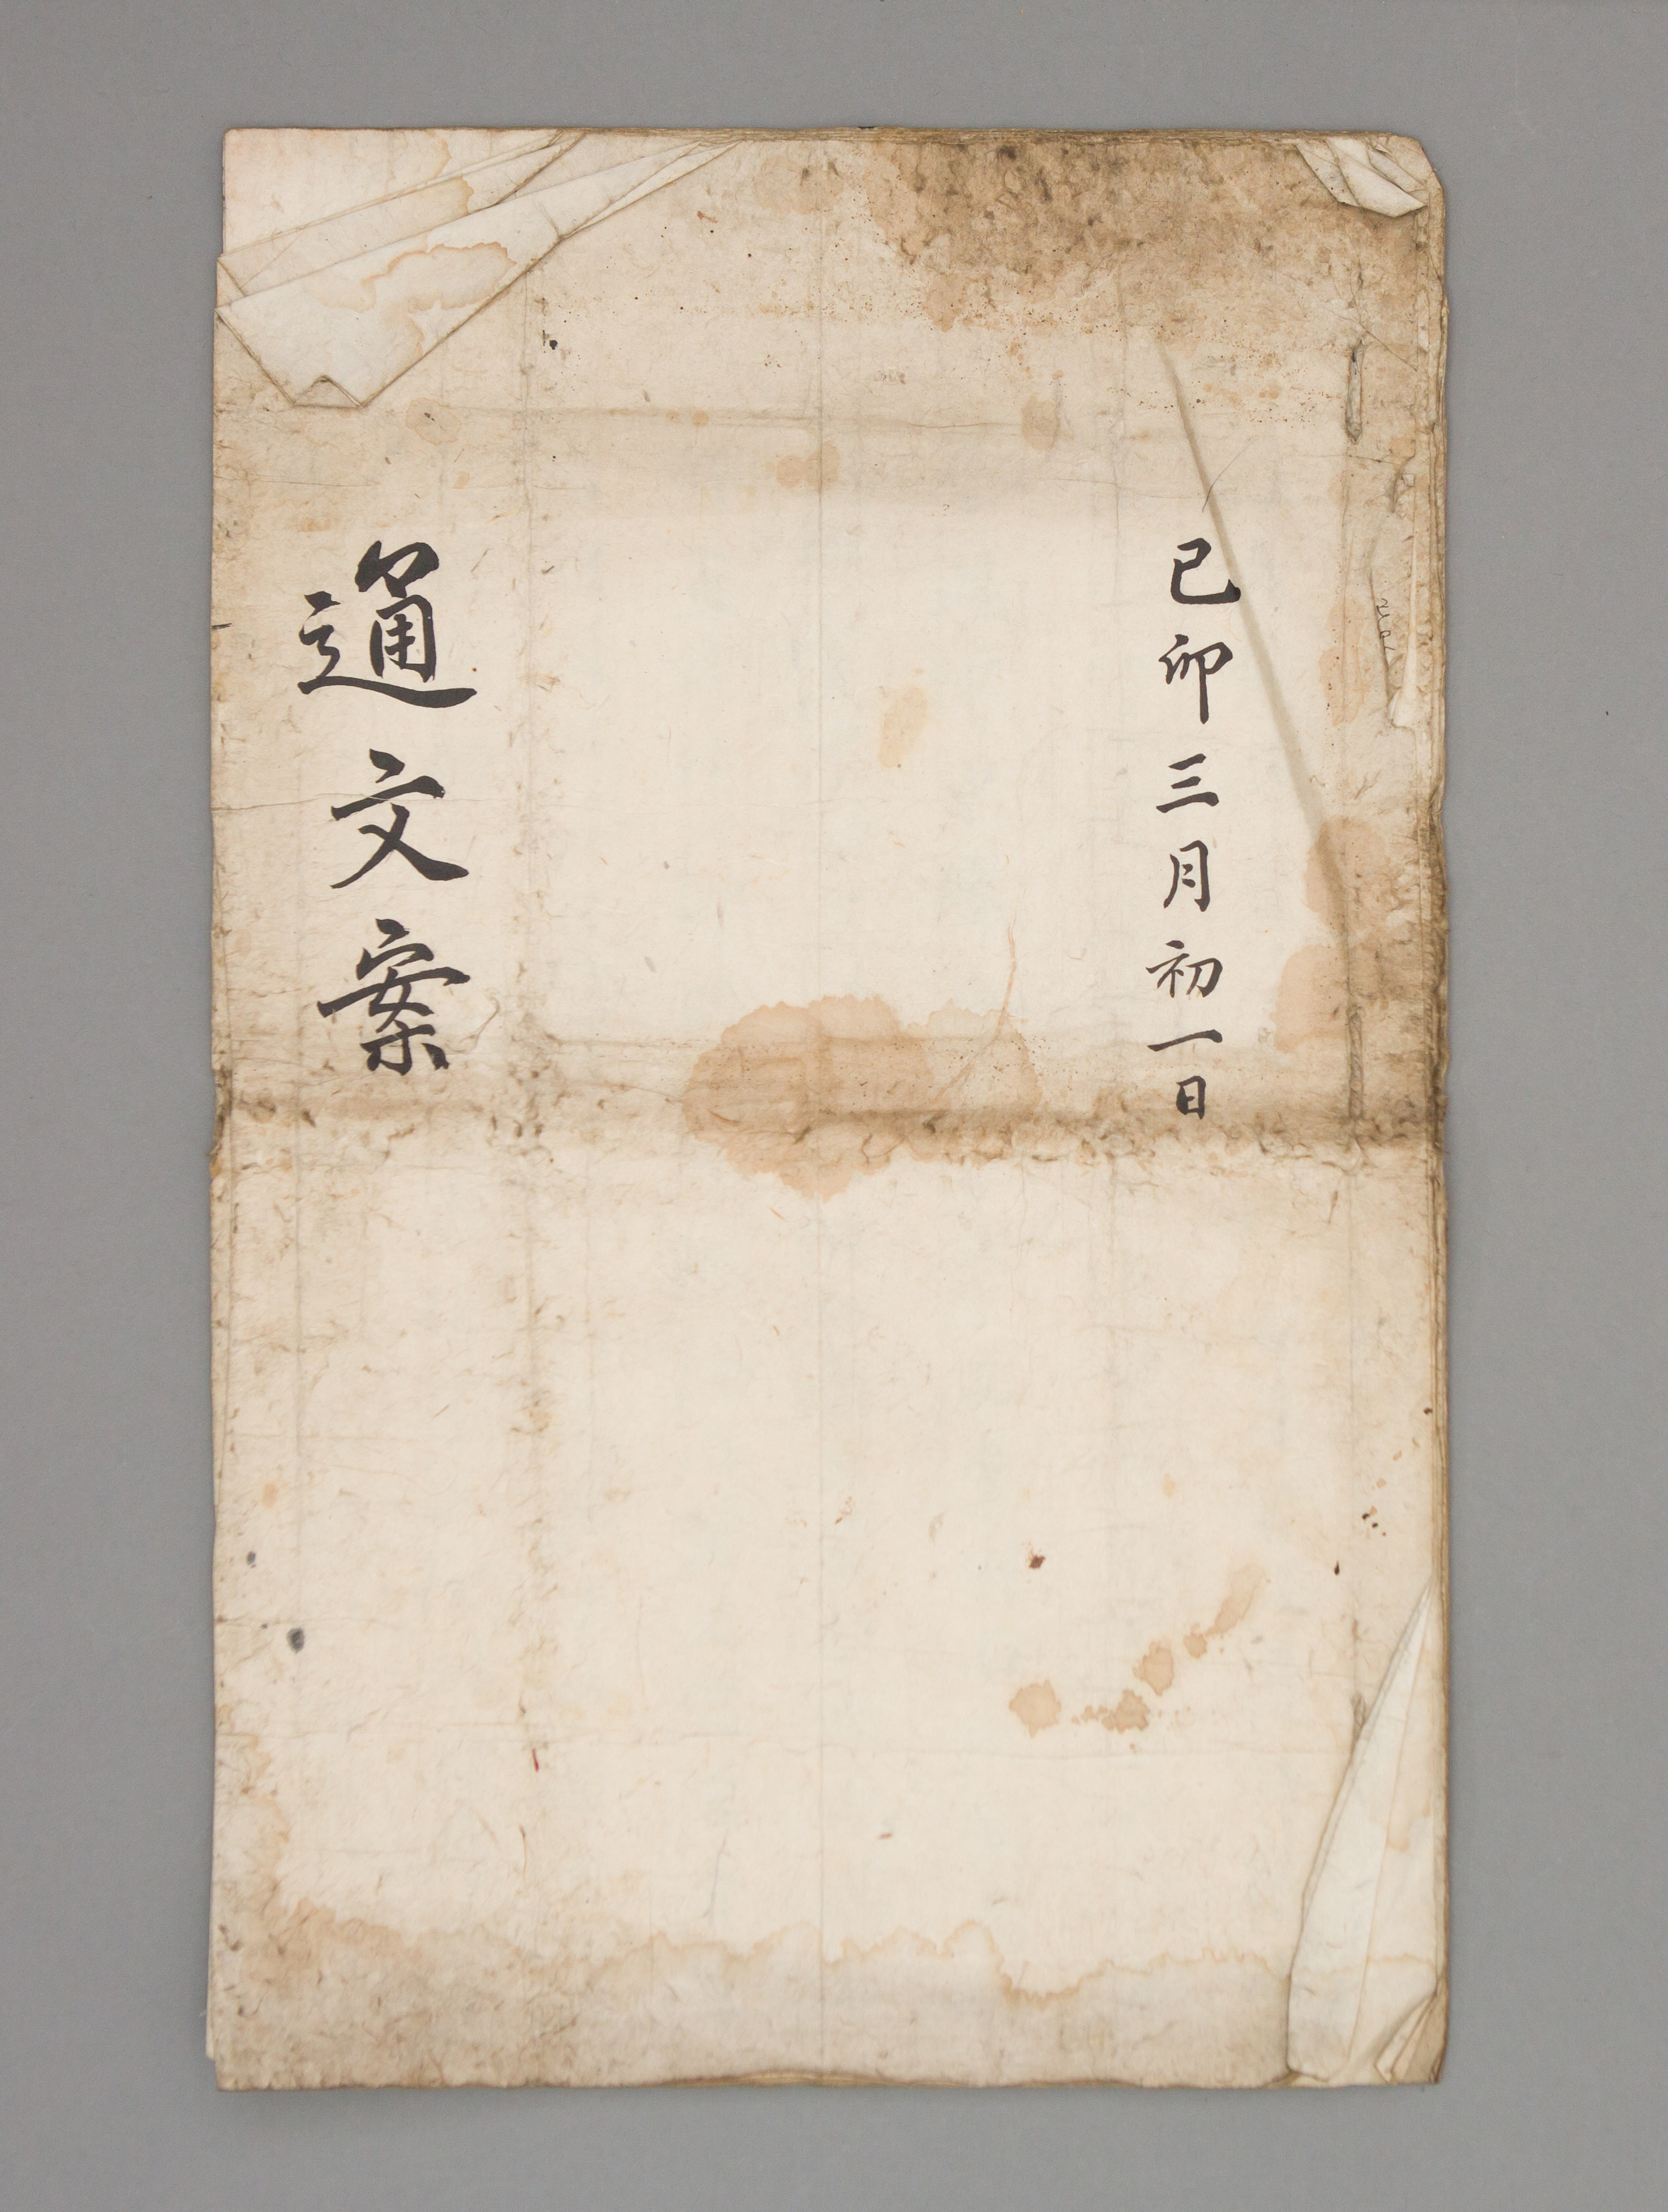 己卯三月初一日
通文案